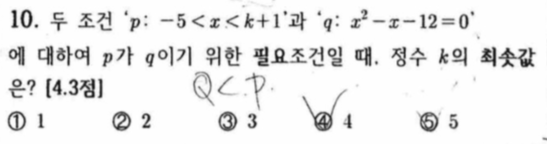 10. 두 조건 ‘p: −5<x<k+1’과 ‘q: x²−x−12=0’
에 대하여 p가 q이기 위한 필요조건일 때, 정수 k의 최솟값
은? [4.3점]
Q⊂P.
① 1 ② 2 ③ 3 ④ 4 ⑤ 5